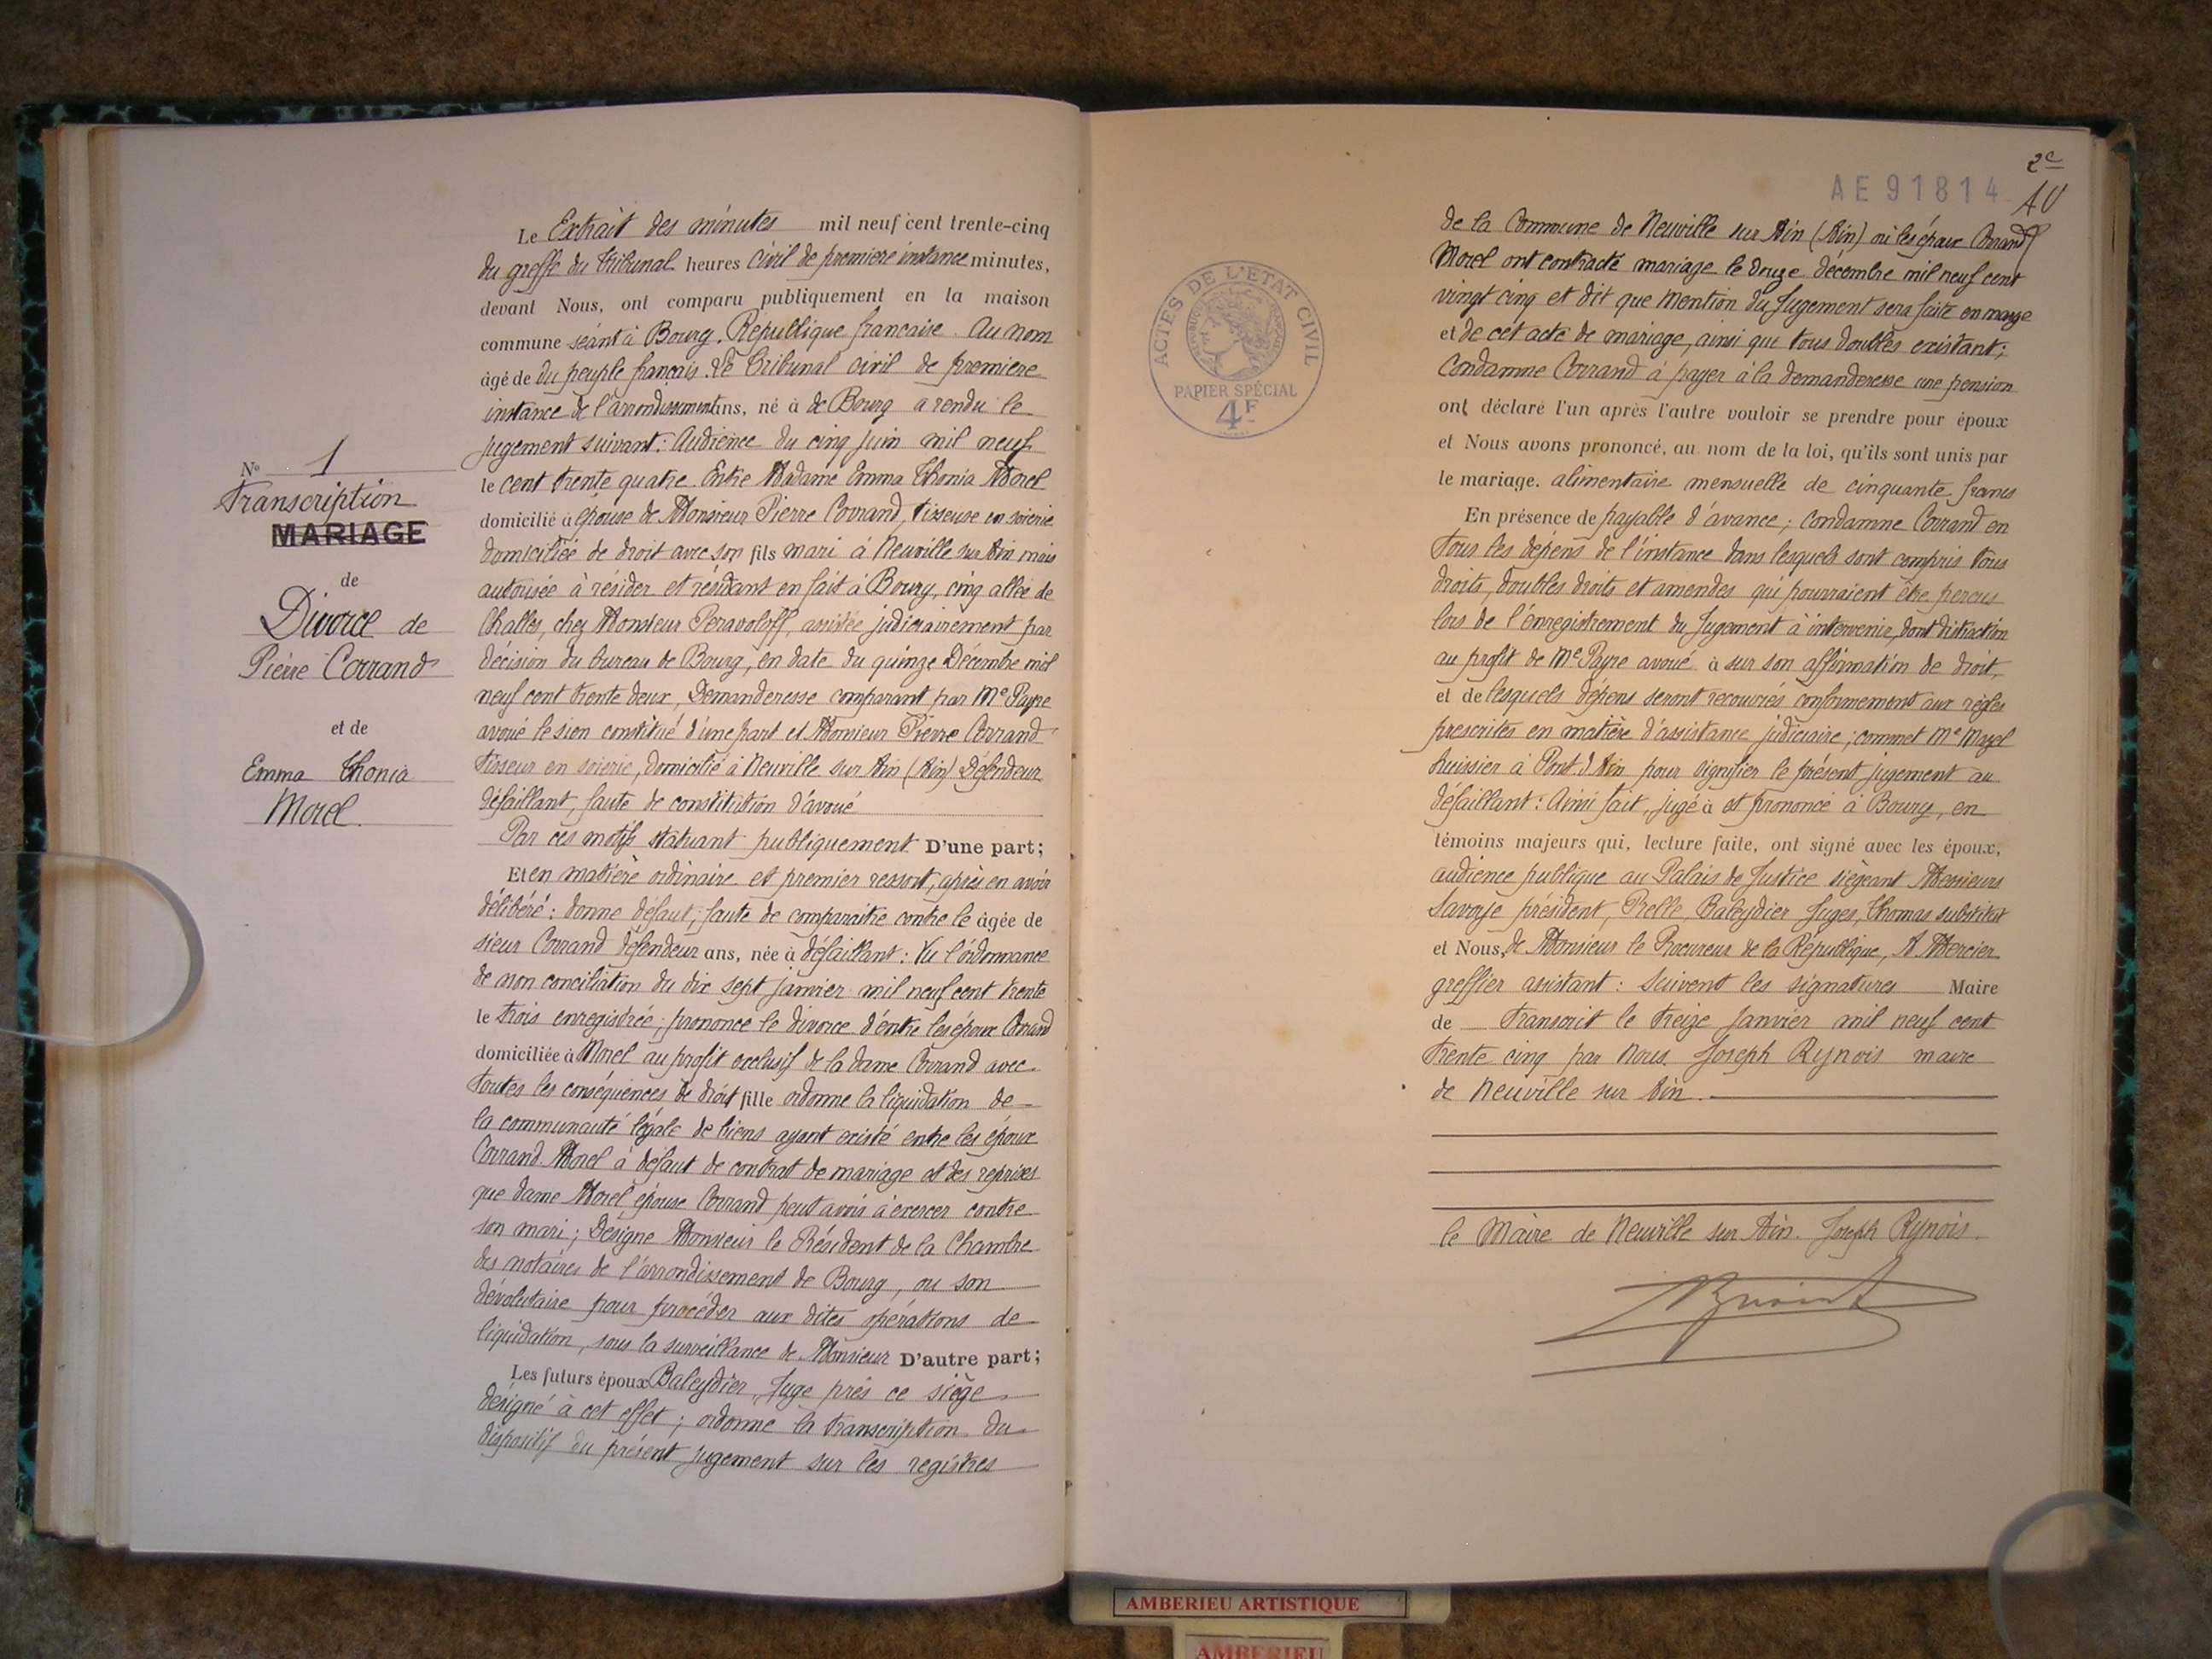 N° 1
Transcription
MARIAGE
de
Divorce de
Pierre Corrand
et de
Emma Thonia
Morel
Le Extrait des minutes mil neuf cent trente-cinq
du greffe du Tribunal heures civil de première instance minutes,
devant Nous, ont comparu publiquement en la maison
commune séant à Bourg. République française. Au nom
âgé de du peuple français. Le Tribunal civil de première
instance de l'arrondissement ans, né à de Bourg a rendu le
jugement suivant : Audience du cinq juin mil neuf
le cent trente quatre. Entre Madame Emma Thonia Morel
domicilié à épouse de Monsieur Pierre Corrand, tisseuse en soierie
domiciliée de droit avec son fils mari à Neuville sur Ain mais
autorisée à résider et résidant en fait à Bourg, cinq allée de
Challes, chez Monsieur Peravoloff, assistée judiciairement par
décision du bureau de Bourg, en date du quinze Décembre mil
neuf cent trente deux, Demanderesse comparant par Me Payre
avoué le sien constitué d'une part et Monsieur Pierre Corrand
tisseur en soierie, domicilié à Neuville sur Ain (Ain) Défendeur
défaillant, faute de constitution d'avoué
Par ces motifs statuant publiquement D'une part;
Et en matière ordinaire et premier ressort, après en avoir
délibéré : donne défaut, faute de comparaitre contre le âgée de
sieur Corrand défendeur ans, née à défaillant : Vu l'ordonnance
de non conciliation du dix sept janvier mil neuf cent trente
le trois enregistrée ; prononce le divorce d'entre les époux Corrand
domiciliée à Morel au profit exclusif de la dame Corrand avec
toutes les conséquences de droit fille ordonne la liquidation de
la communauté légale de biens ayant existé entre les époux
Corrand Morel à défaut de contrat de mariage et des reprises
que dame Morel épouse Corrand peut avoir à exercer contre
son mari ; Désigne Monsieur le Président de la Chambre
des notaires de l'arrondissement de Bourg, ou son
dévolutaire pour procéder aux dites opérations de
liquidation, sous la surveillance de Monsieur D'autre part;
Les futurs époux Baleydier, Juge près ce siège
désigné à cet effet ; ordonne la transcription du
dispositif du présent jugement sur les registres
ACTES DE L'ETAT CIVIL
PAPIER SPÉCIAL
4F
2e
AE 91814
de la Commune de Neuville sur Ain (Ain) où les époux Corrand
Morel ont contracté mariage le douze décembre mil neuf cent
vingt cinq et dit que mention du Jugement sera faite en marge
et de cet acte de mariage, ainsi que tous doubles existant ;
Condamne Corrand à payer à la demanderesse une pension
ont déclaré l'un après l'autre vouloir se prendre pour époux
et Nous avons prononcé, au nom de la loi, qu'ils sont unis par
le mariage. alimentaire mensuelle de cinquante francs
En présence de payable d'avance ; condamne Corrand en
tous les dépens de l'instance dans lesquels sont compris tous
droits, doubles droits et amendes qui pourraient être perçus
lors de l'enregistrement du Jugement à intervenir, dont distraction
au profit de Me Payre avoué à sur son affirmation de droit,
et de lesquels dépens seront recouvrés conformément aux règles
prescrites en matière d'assistance judiciaire ; commet Me Mazel
huissier à Pont d'Ain pour signifier le présent jugement au
défaillant : Ainsi fait, jugé à et prononcé à Bourg, en
témoins majeurs qui, lecture faite, ont signé avec les époux,
audience publique au Palais de Justice siègeant Messieurs
Savoye président, Prelle, Baleydier Juges, Thomas substitut
et Nous, de Monsieur le Procureur de la République, A Mercier
greffier assistant : Suivent les signatures Maire
de Transcrit le treize Janvier mil neuf cent
trente cinq par Nous. Joseph Rynois maire
de Neuville sur Ain.
le Maire de Neuville sur Ain. Joseph Rynois.
AMBERIEU ARTISTIQUE
AMBERIEU